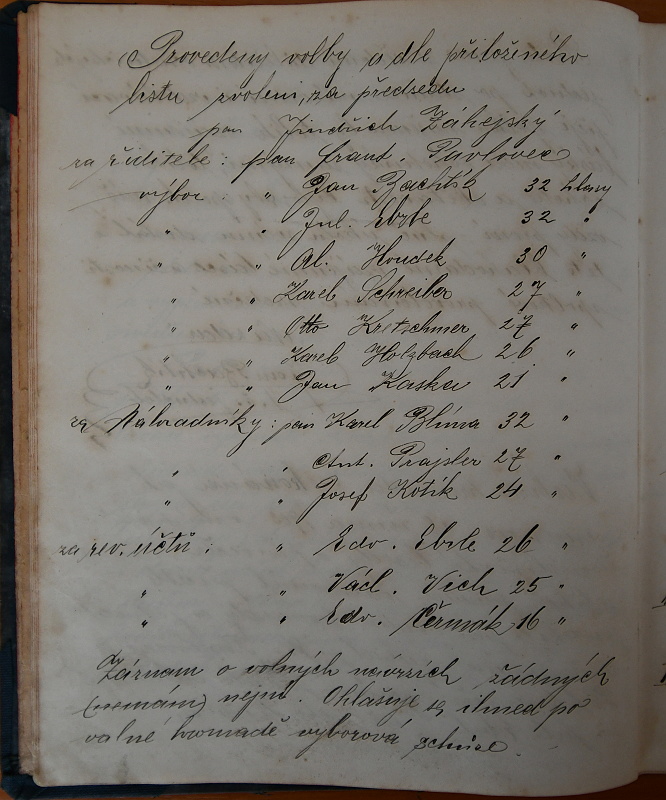 Provedeny volby a dle přiloženého
listu zvoleni, za předsedu
pan Jindřich Záhejský
za řiditele : pan Frant. Pavlovec
výbor. " Jan Bachtík 32 hlasy
" " Jul. Ebrle 32 "
" " Al. Houdek 30 "
" " Karel Schreiber 27 "
" " Otto Kretschmer 27 "
" " Karel Holzbach 26 "
" " Jan Kaska 21 "
za Náhradníky : pan Karel Blíma 32 "
" " Ant. Prajsler 27 "
" " Josef Kotík 24 "
za rev. účtů : " Edv. Ebrle 26 "
" " Václ. Vich 25 "
" " Edv. Čermák 16 "
Záznam o volných návrzích žádných
(nemám) nejni. Ohlašuje se ihned po
valné hromadě výborová schůze.